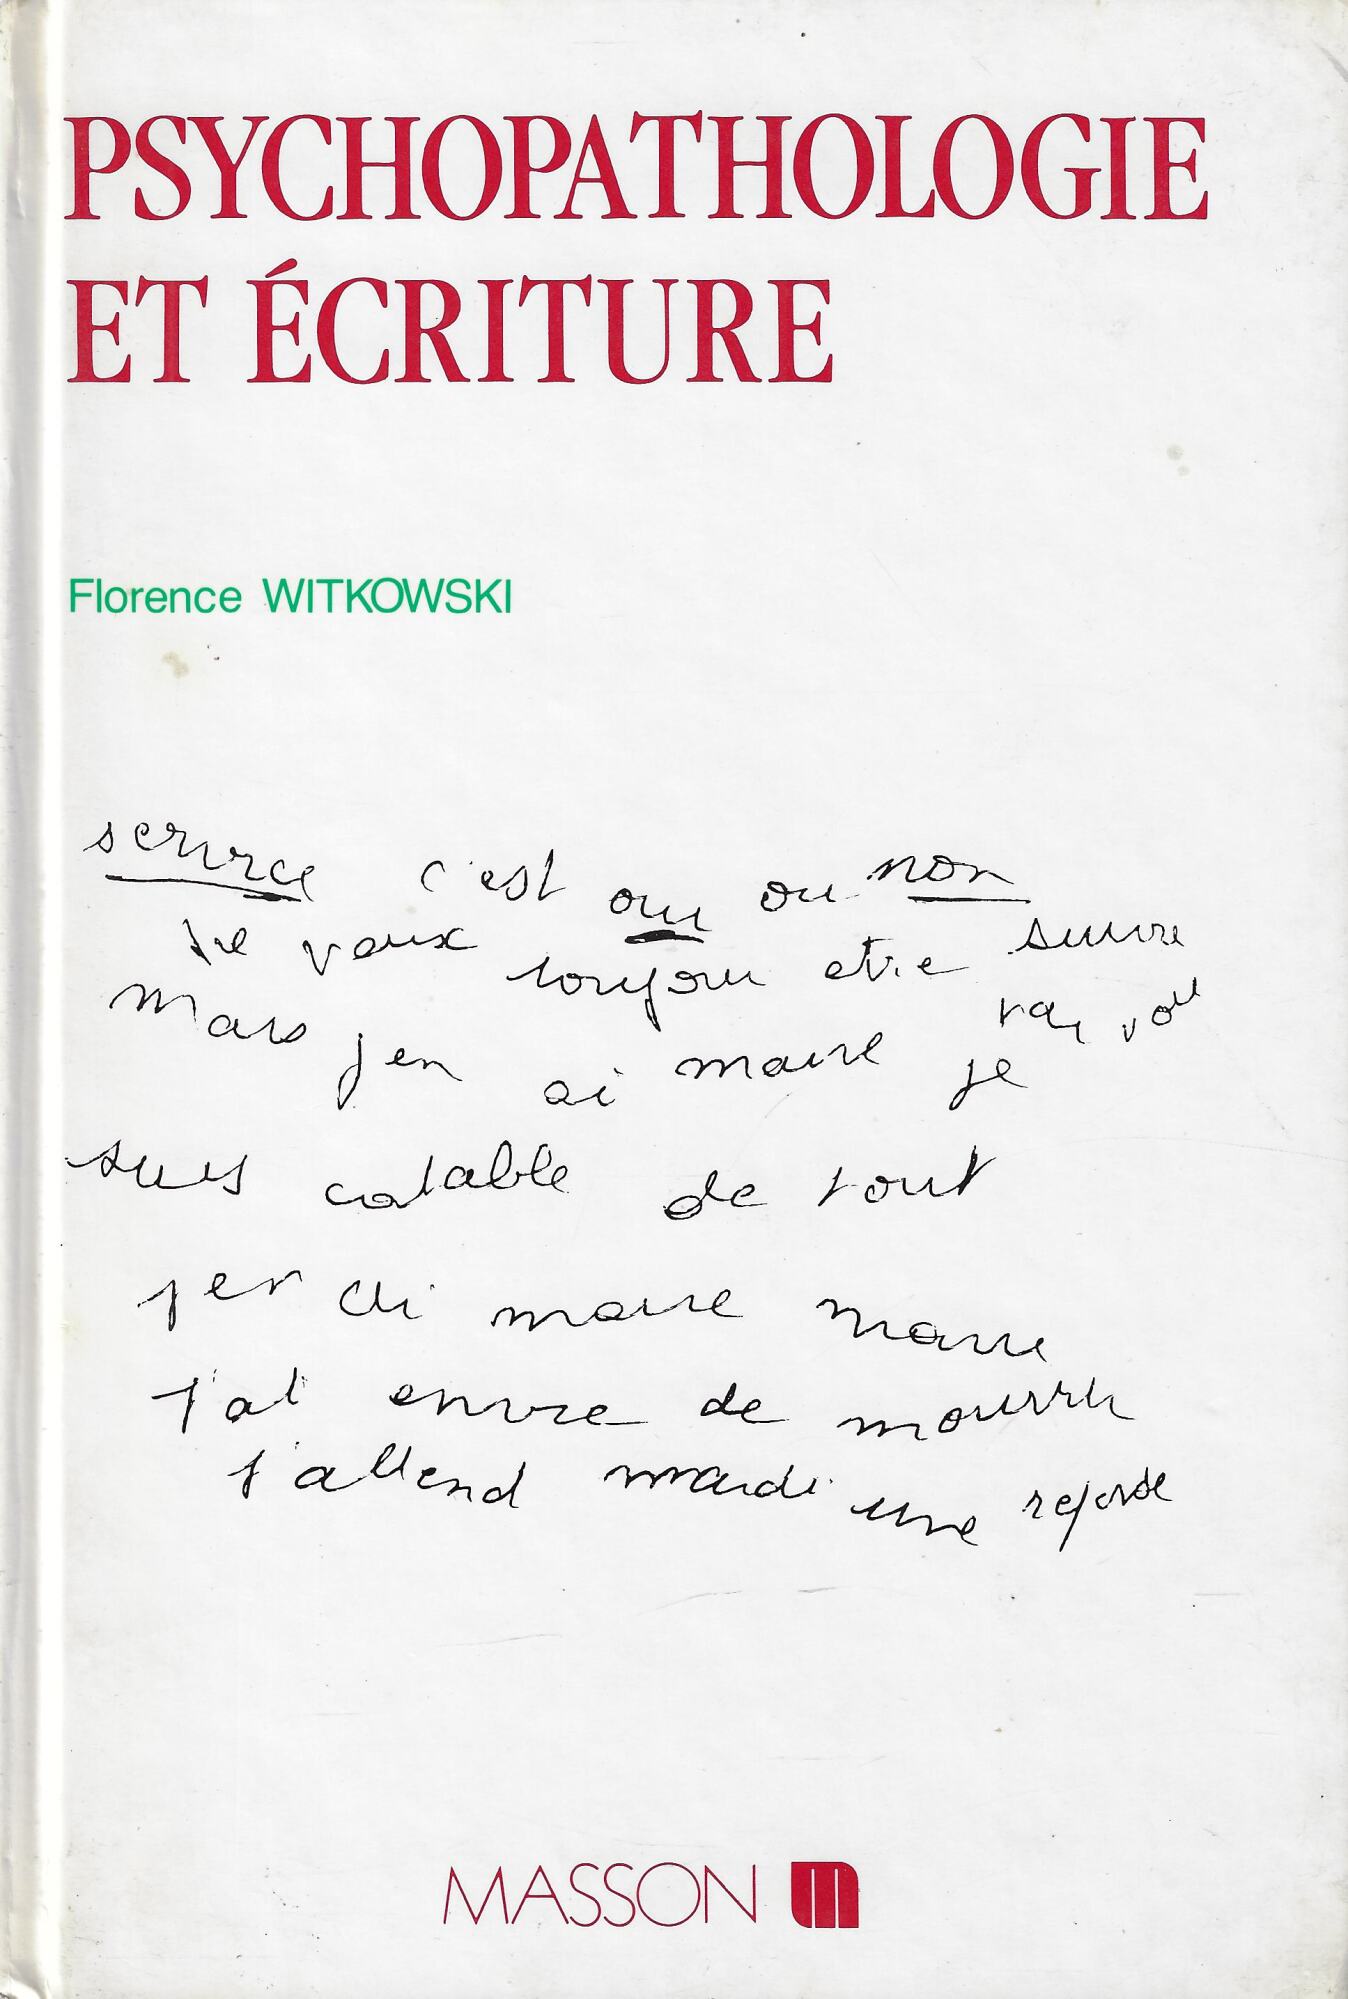 PSYCHOPATHOLOGIE
ET ÉCRITURE
Florence WITKOWSKI
service c'est oui ou non
Je veux toujour etre suivre
Mais j'en ai marre par vou
je
suis capable de tout
j'en ai marre marre
J'ai envie de mourrir
J'attend mardi une reponse
MASSON